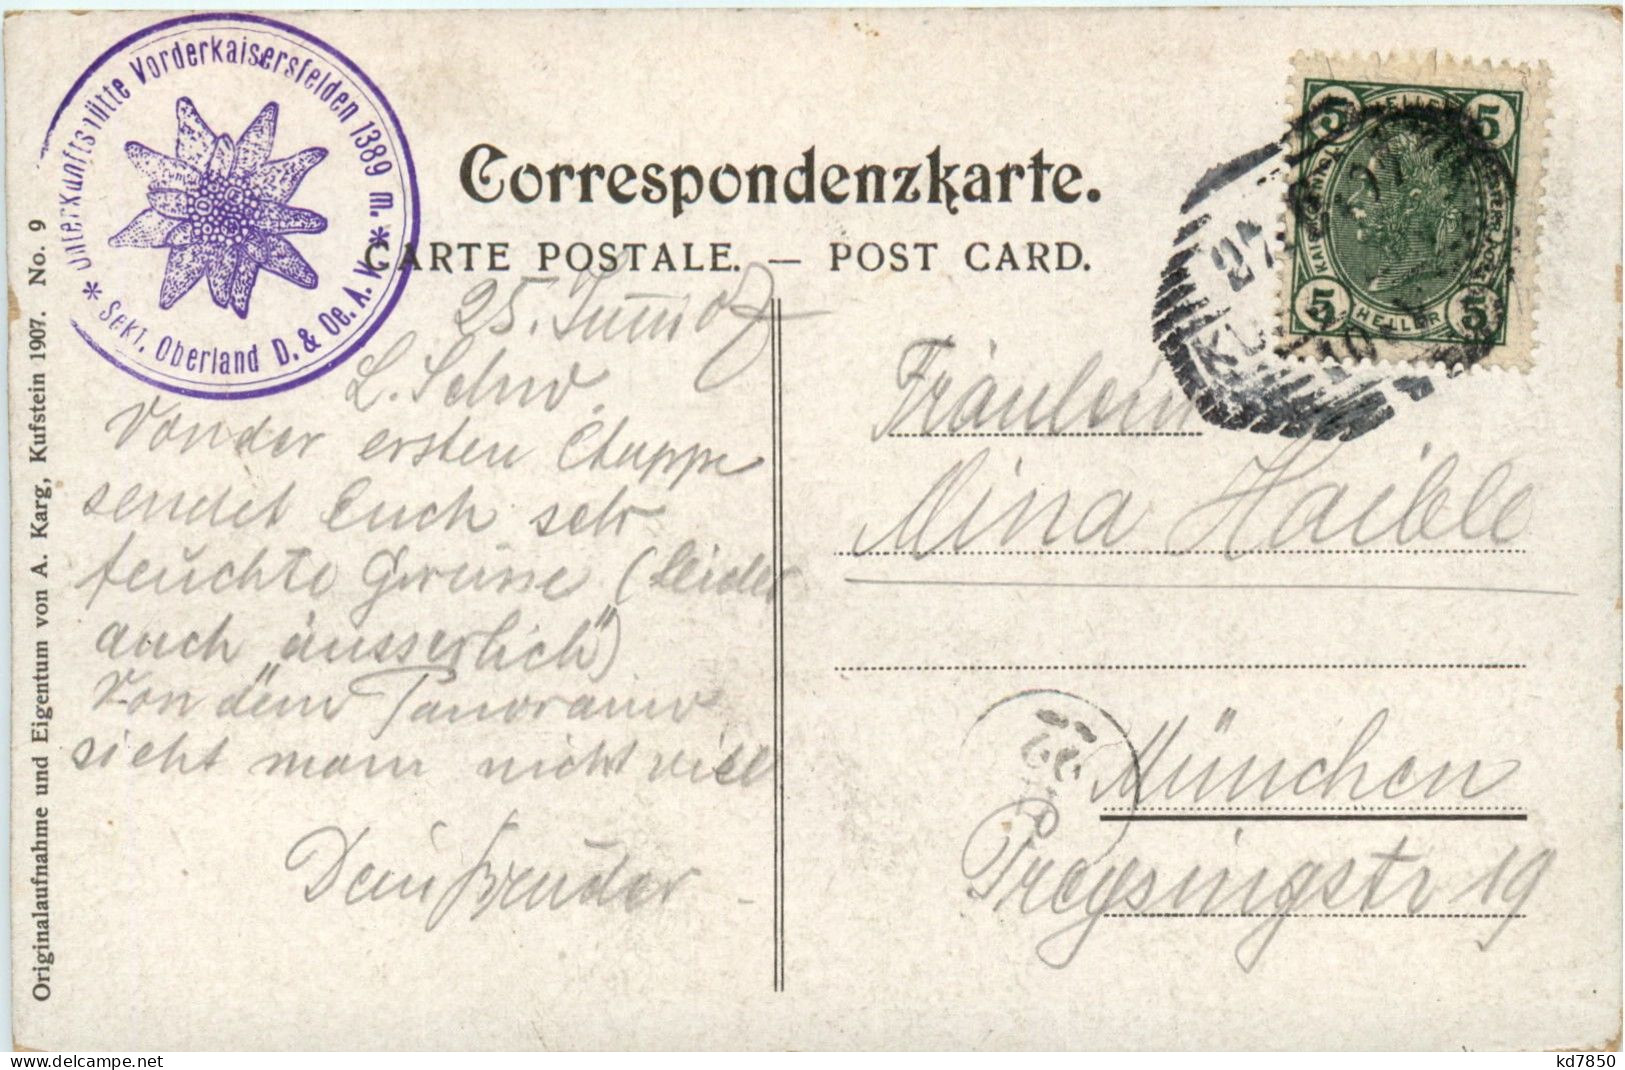 Unterkunftshütte Vorderkaisersfelden 1389 m.
* Sekt. Oberland D. & Oe. A. V. *
Correspondenzkarte.
CARTE POSTALE. — POST CARD.
Originalaufnahme und Eigentum von A. Karg, Kufstein 1907. No. 9
5 HELLER 5
5 HELLER 5
27
KUF
25. Juni 07
L. Schw.
Von der ersten Etappe
sendet Euch sehr
feuchte Grüsse (leider
auch „äusserlich")
Von dem Panorama
sieht man nicht viel
Dein Bruder
Fräulein
Mina Haible
München
Preysingstr 19
kd7850